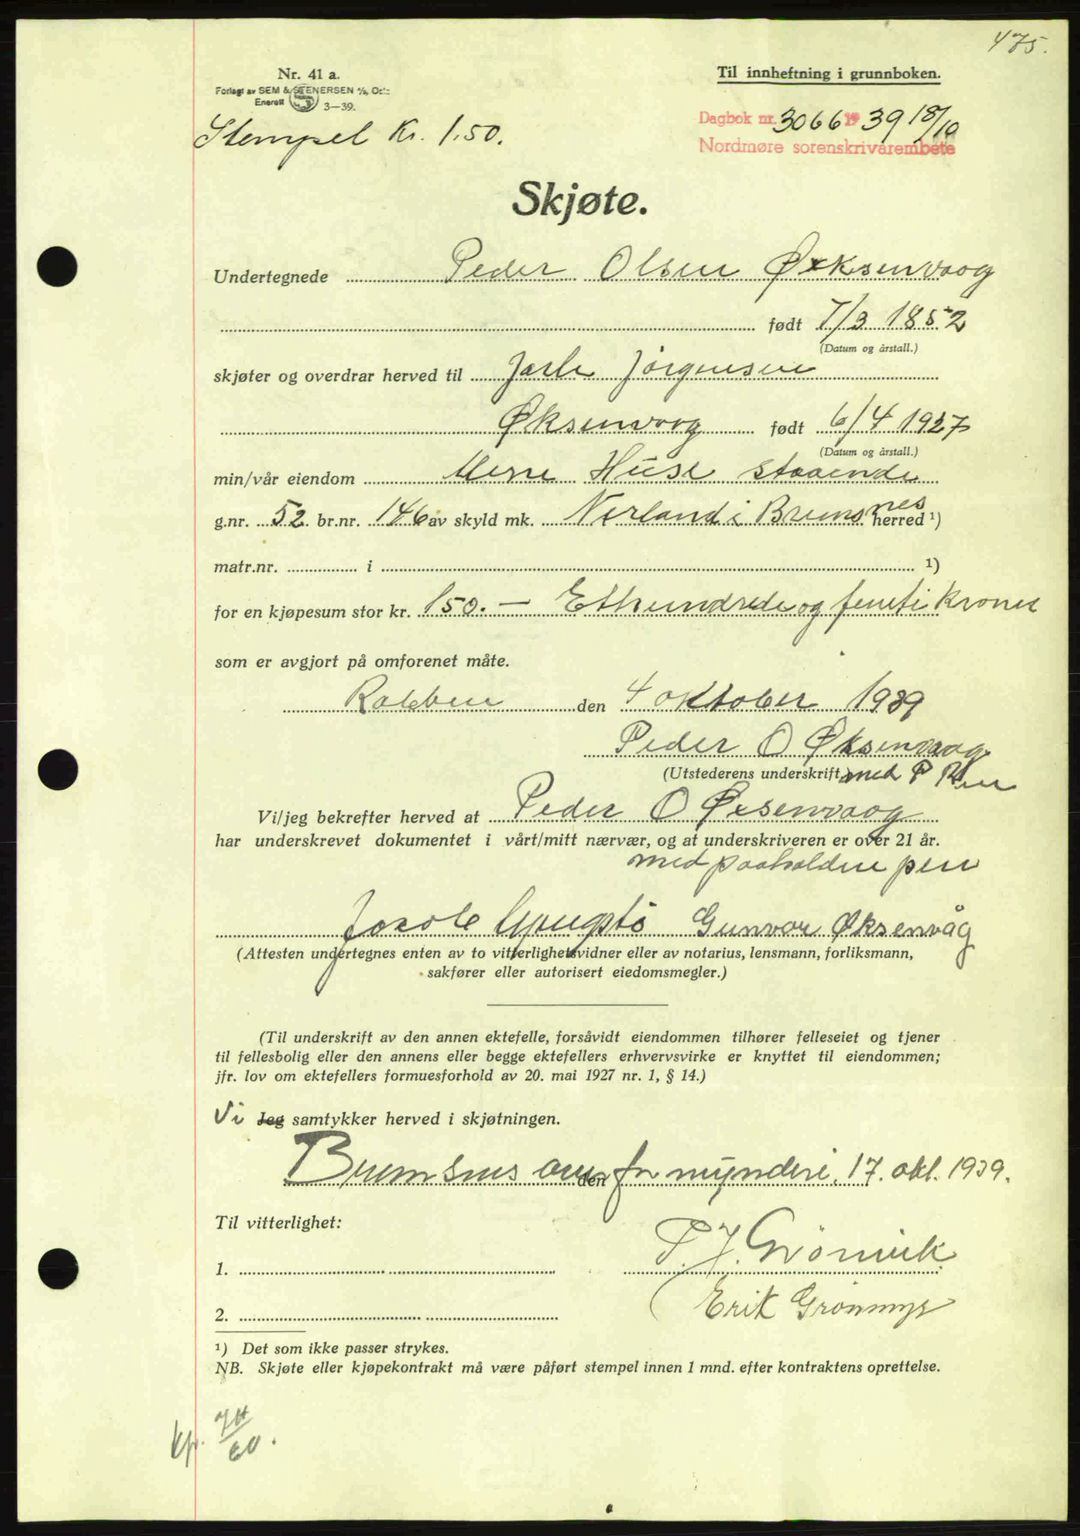 475.
Nr. 41 a.
Forlagt av SEM & STENERSEN A/S, Oslo
Enerett 3—39.
Til innheftning i grunnboken.
Stempel Kr. 1.50.
Dagbok nr. 3066 1939 18/10
Nordmøre sorenskriverembete
Skjøte.
Undertegnede Peder Olsen Øksenvaag
født 7/3 1852
(Datum og årstall.)
skjøter og overdrar herved til Jarle Jørgensen
Øksenvaag født 6/4 1927
(Datum og årstall.)
min/vår eiendom Huse staaende
g.nr. 52 br.nr. 146 av skyld mk. Norland i Bremsnes herred ¹)
matr.nr. i ¹)
for en kjøpesum stor kr. 150.— Ethundrede og femti kroner
som er avgjort på omforenet måte.
den 4 oktober 1939
Peder O Øksenvaag
(Utstederens underskrift) med P Pen
Vi/jeg bekrefter herved at Peder O Øksenvaag
har underskrevet dokumentet i vårt/mitt nærvær, og at underskriveren er over 21 år.
med paaholdne pen
Jakob Gunvor Øksenvåg
(Attesten undertegnes enten av to vitterlighetsvidner eller av notarius, lensmann, forliksmann,
sakfører eller autorisert eiedomsmegler.)
(Til underskrift av den annen ektefelle, forsåvidt eiendommen tilhører felleseiet og tjener
til fellesbolig eller den annens eller begge ektefellers erhvervsvirke er knyttet til eiendommen;
jfr. lov om ektefellers formuesforhold av 20. mai 1927 nr. 1, § 14.)
Vi Jeg samtykker herved i skjøtningen.
Bremsnes overformynderi, den 17. okt. 1939.
Til vitterlighet:
P. J. Grönvik
1.
Erik Grönmyr
2.
¹) Det som ikke passer strykes.
NB. Skjøte eller kjøpekontrakt må være påført stempel innen 1 mnd. efter kontraktens oprettelse.